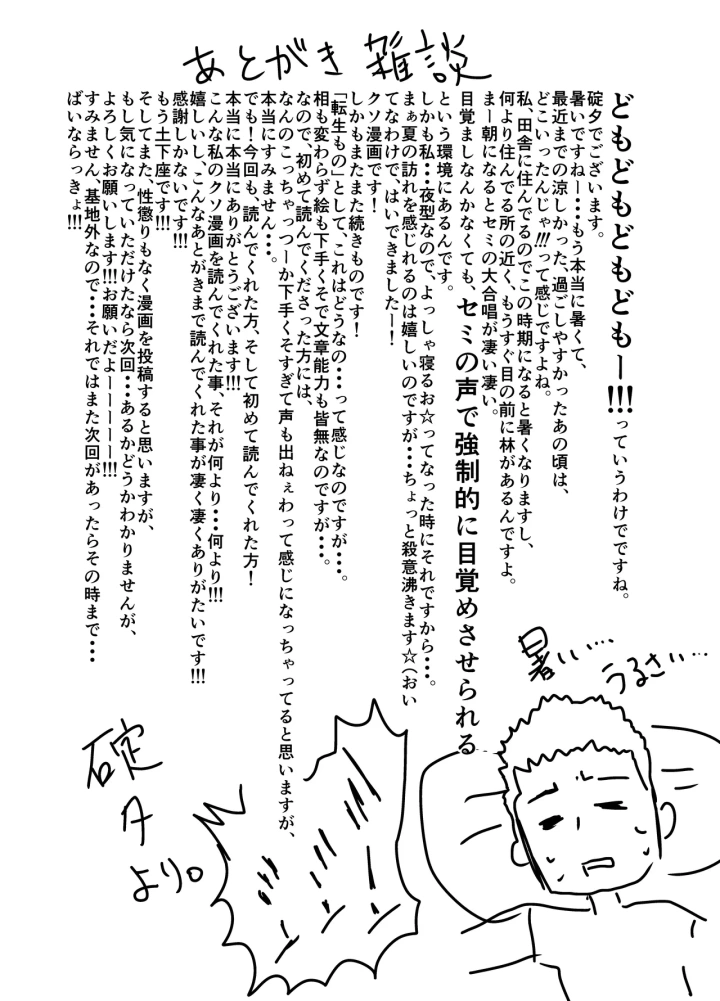 あとがき雑談
どもどもどもどもー!!!っていうわけでですね。
碇タでございます。
暑いですねー・・・もう本当に暑くて、
最近までの涼しかった、過ごしやすかったあの頃は、
どこいったんじゃ!!!って感じですよね。
私、田舎に住んでるのでこの時期になると暑くなりますし、
何より住んでる所の近く、もうすぐ目の前に林があるんですよ。
まー朝になるとセミの大合唱が凄い凄い。
目覚ましなんかなくても、セミの声で強制的に目覚めさせられる
という環境にあるんです。
しかも私・・・夜型なので、よっしゃ寝るお☆ってなった時にそれですから・・・。
まぁ夏の訪れを感じれるのは嬉しいのですが・・・ちょっと殺意沸きます☆(おい
てなわけで、はいできましたー!
クソ漫画です!
しかもまたまた続きものです!
「転生もの」として、これはどうなの・・・って感じなのですが・・・。
相も変わらず絵も下手くそで文章能力も皆無なのですが・・・。
なので、初めて読んでくださった方には、
なんのこっちゃっつーか下手くそすぎて声も出ねぇわって感じになっちゃってると思いますが、
本当にすみません・・・。
でも!今回も、読んでくれた方、そして初めて読んでくれた方!
本当に本当にありがとうございます!!!
こんな私のクソ漫画を読んでくれた事、それが何より・・・何より!!!
嬉しいし、こんなあとがきまで読んでくれた事が凄く凄くありがたいです!!!
感謝しかないです!!!
もう土下座です!!!
そしてまた、性懲りもなく漫画を投稿すると思いますが、
もし気になっていただけたなら次回・・・あるかどうかわかりませんが、
よろしくお願いします!!!お願いだよーーーーー!!!
すみません、基地外なので・・・それではまた次回があったらその時まで・・・
ばいならっきょ!!!
暑い…
うるさい…
ミーン
ミーン
ミーン
碇タ
より。